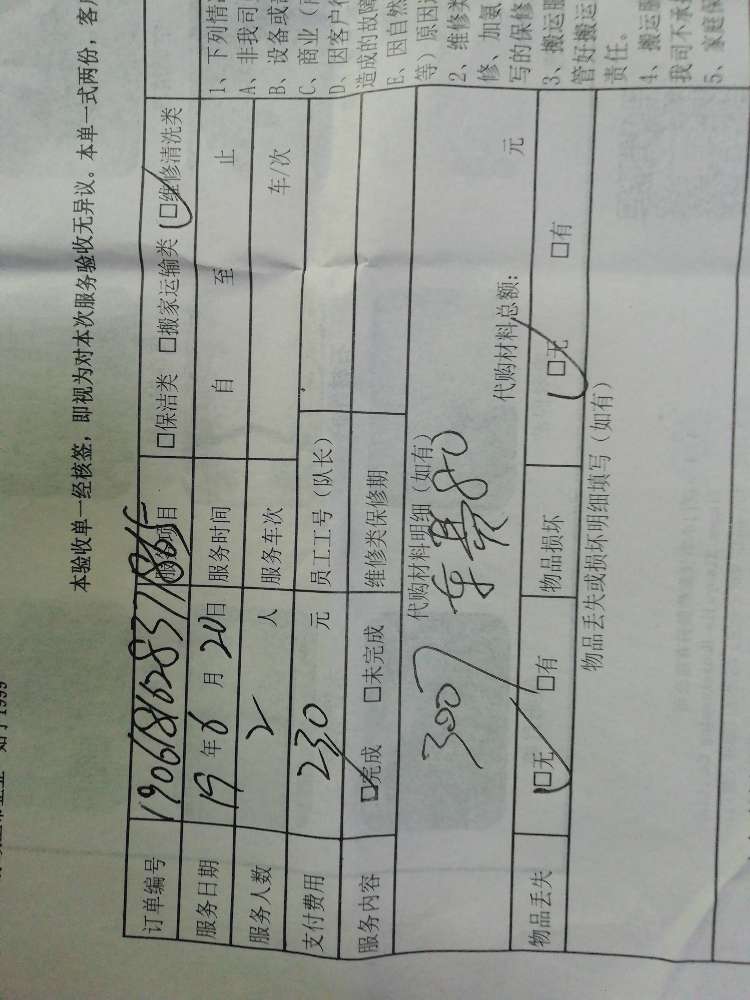 始于1999
本验收单一经核签，即视为对本次服务验收无异议。本单一式两份，客
订单编号 190618162837 服务项目 □保洁类 □搬家运输类 □维修清洗类
服务日期 19年6月20日 服务时间 自 至 止
服务人数 2 人 服务车次 车/次
支付费用 230 元 员工工号（队长）
服务内容 □完成 □未完成 维修类保修期
代购材料明细（如有）
300 80
代购材料总额： 元
物品丢失 □无 □有 物品损坏 □无 □有
物品丢失或损坏明细填写（如有）
1、下列情
A、非我司
B、设备或
C、商业（
D、因客户
造成的故障
E、因自然
等）原因
2、维修类
修、加氨
写的保修
3、搬运服
管好搬运
责任。
4、搬运服
我司不承
5、家庭保